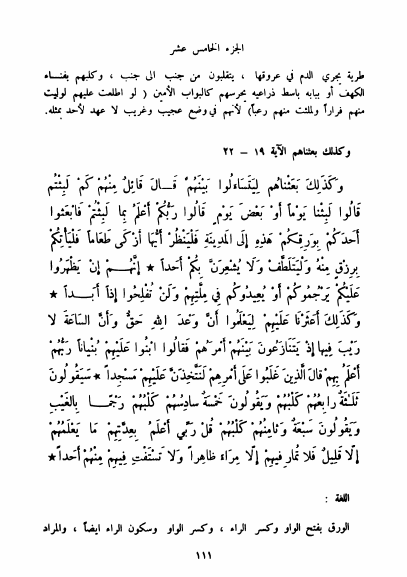 الجزء الخامس عشر
طرية يجري الدم في عروقها ، يتقلبون من جنب الى جنب ، وكلبهم بفناء
الكهف أو ببابه باسط ذراعيه يحرسهم كالبواب الأمين ( لو اطلعت عليهم لوليت
منهم فراراً ولملئت منهم رعباً) لأنهم في وضع عجيب وغريب لا عهد لأحد بمثله.
وكذلك بعثناهم الآية ١٩ - ٢٢
وَكَذَلِكَ بَعَثْنَاهُمْ لِيَتَسَاءَلُوا بَيْنَهُمْ قَالَ قَائِلٌ مِنْهُمْ كَمْ لَبِثْتُمْ
قَالُوا لَبِثْنَا يَوْماً أَوْ بَعْضَ يَوْمٍ قَالُوا رَبُّكُمْ أَعْلَمُ بِمَا لَبِثْتُمْ فَابْعَثُوا
أَحَدَكُمْ بِوَرِقِكُمْ هَذِهِ إِلَى الْمَدِينَةِ فَلْيَنْظُرْ أَيُّهَا أَزْكَى طَعَاماً فَلْيَأْتِكُمْ
بِرِزْقٍ مِنْهُ وَلْيَتَلَطَّفْ وَلَا يُشْعِرَنَّ بِكُمْ أَحَداً ★ إِنَّهُمْ إِنْ يَظْهَرُوا
عَلَيْكُمْ يَرْجُمُوكُمْ أَوْ يُعِيدُوكُمْ فِي مِلَّتِهِمْ وَلَنْ تُفْلِحُوا إِذاً أَبَداً ★
وَكَذَلِكَ أَعْثَرْنَا عَلَيْهِمْ لِيَعْلَمُوا أَنَّ وَعْدَ اللهِ حَقٌّ وَأَنَّ السَّاعَةَ لَا
رَيْبَ فِيهَا إِذْ يَتَنَازَعُونَ بَيْنَهُمْ أَمْرَهُمْ فَقَالُوا ابْنُوا عَلَيْهِمْ بُنْيَاناً رَبُّهُمْ
أَعْلَمُ بِهِمْ قَالَ الَّذِينَ غَلَبُوا عَلَى أَمْرِهِمْ لَنَتَّخِذَنَّ عَلَيْهِمْ مَسْجِداً ★ سَيَقُولُونَ
ثَلَثَةٌ رَابِعُهُمْ كَلْبُهُمْ وَيَقُولُونَ خَمْسَةٌ سَادِسُهُمْ كَلْبُهُمْ رَجْماً بِالْغَيْبِ
وَيَقُولُونَ سَبْعَةٌ وَثَامِنُهُمْ كَلْبُهُمْ قُلْ رَبِّي أَعْلَمُ بِعِدَّتِهِمْ مَا يَعْلَمُهُمْ
إِلَّا قَلِيلٌ فَلَا تُمَارِ فِيهِمْ إِلَّا مِرَاءً ظَاهِراً وَلَا تَسْتَفْتِ فِيهِمْ مِنْهُمْ أَحَداً ★
اللغة :
الورق بفتح الواو وكسر الراء ، وكسر الواو وسكون الراء ايضاً ، والمراد
١١١